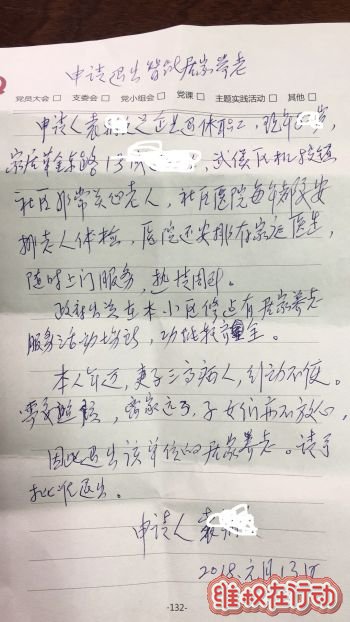 申请退出智能居家养老
党员大会 □ 支委会 □ 党小组会 □ 党课 □ 主题实践活动 □ 其他 □
申请人袁 是企业退休职工，现年 岁，
家居 东路1号 ，武侯区机投镇
社区非常关心老人，社区医院每年都安
排老人体检，医院还安排有家庭医生，
随时上门服务，热情周到。
政府出资在本小区修建有居家养老
服务活动场所，功能较齐全。
本人年迈，妻子三高病人，行动不便。
需要 ，离家远了，子女们亦不放心，
因此退出该单位的居家养老。请予
批准退出。
申请人 袁
2018.元月13日
-132-
维权在行动